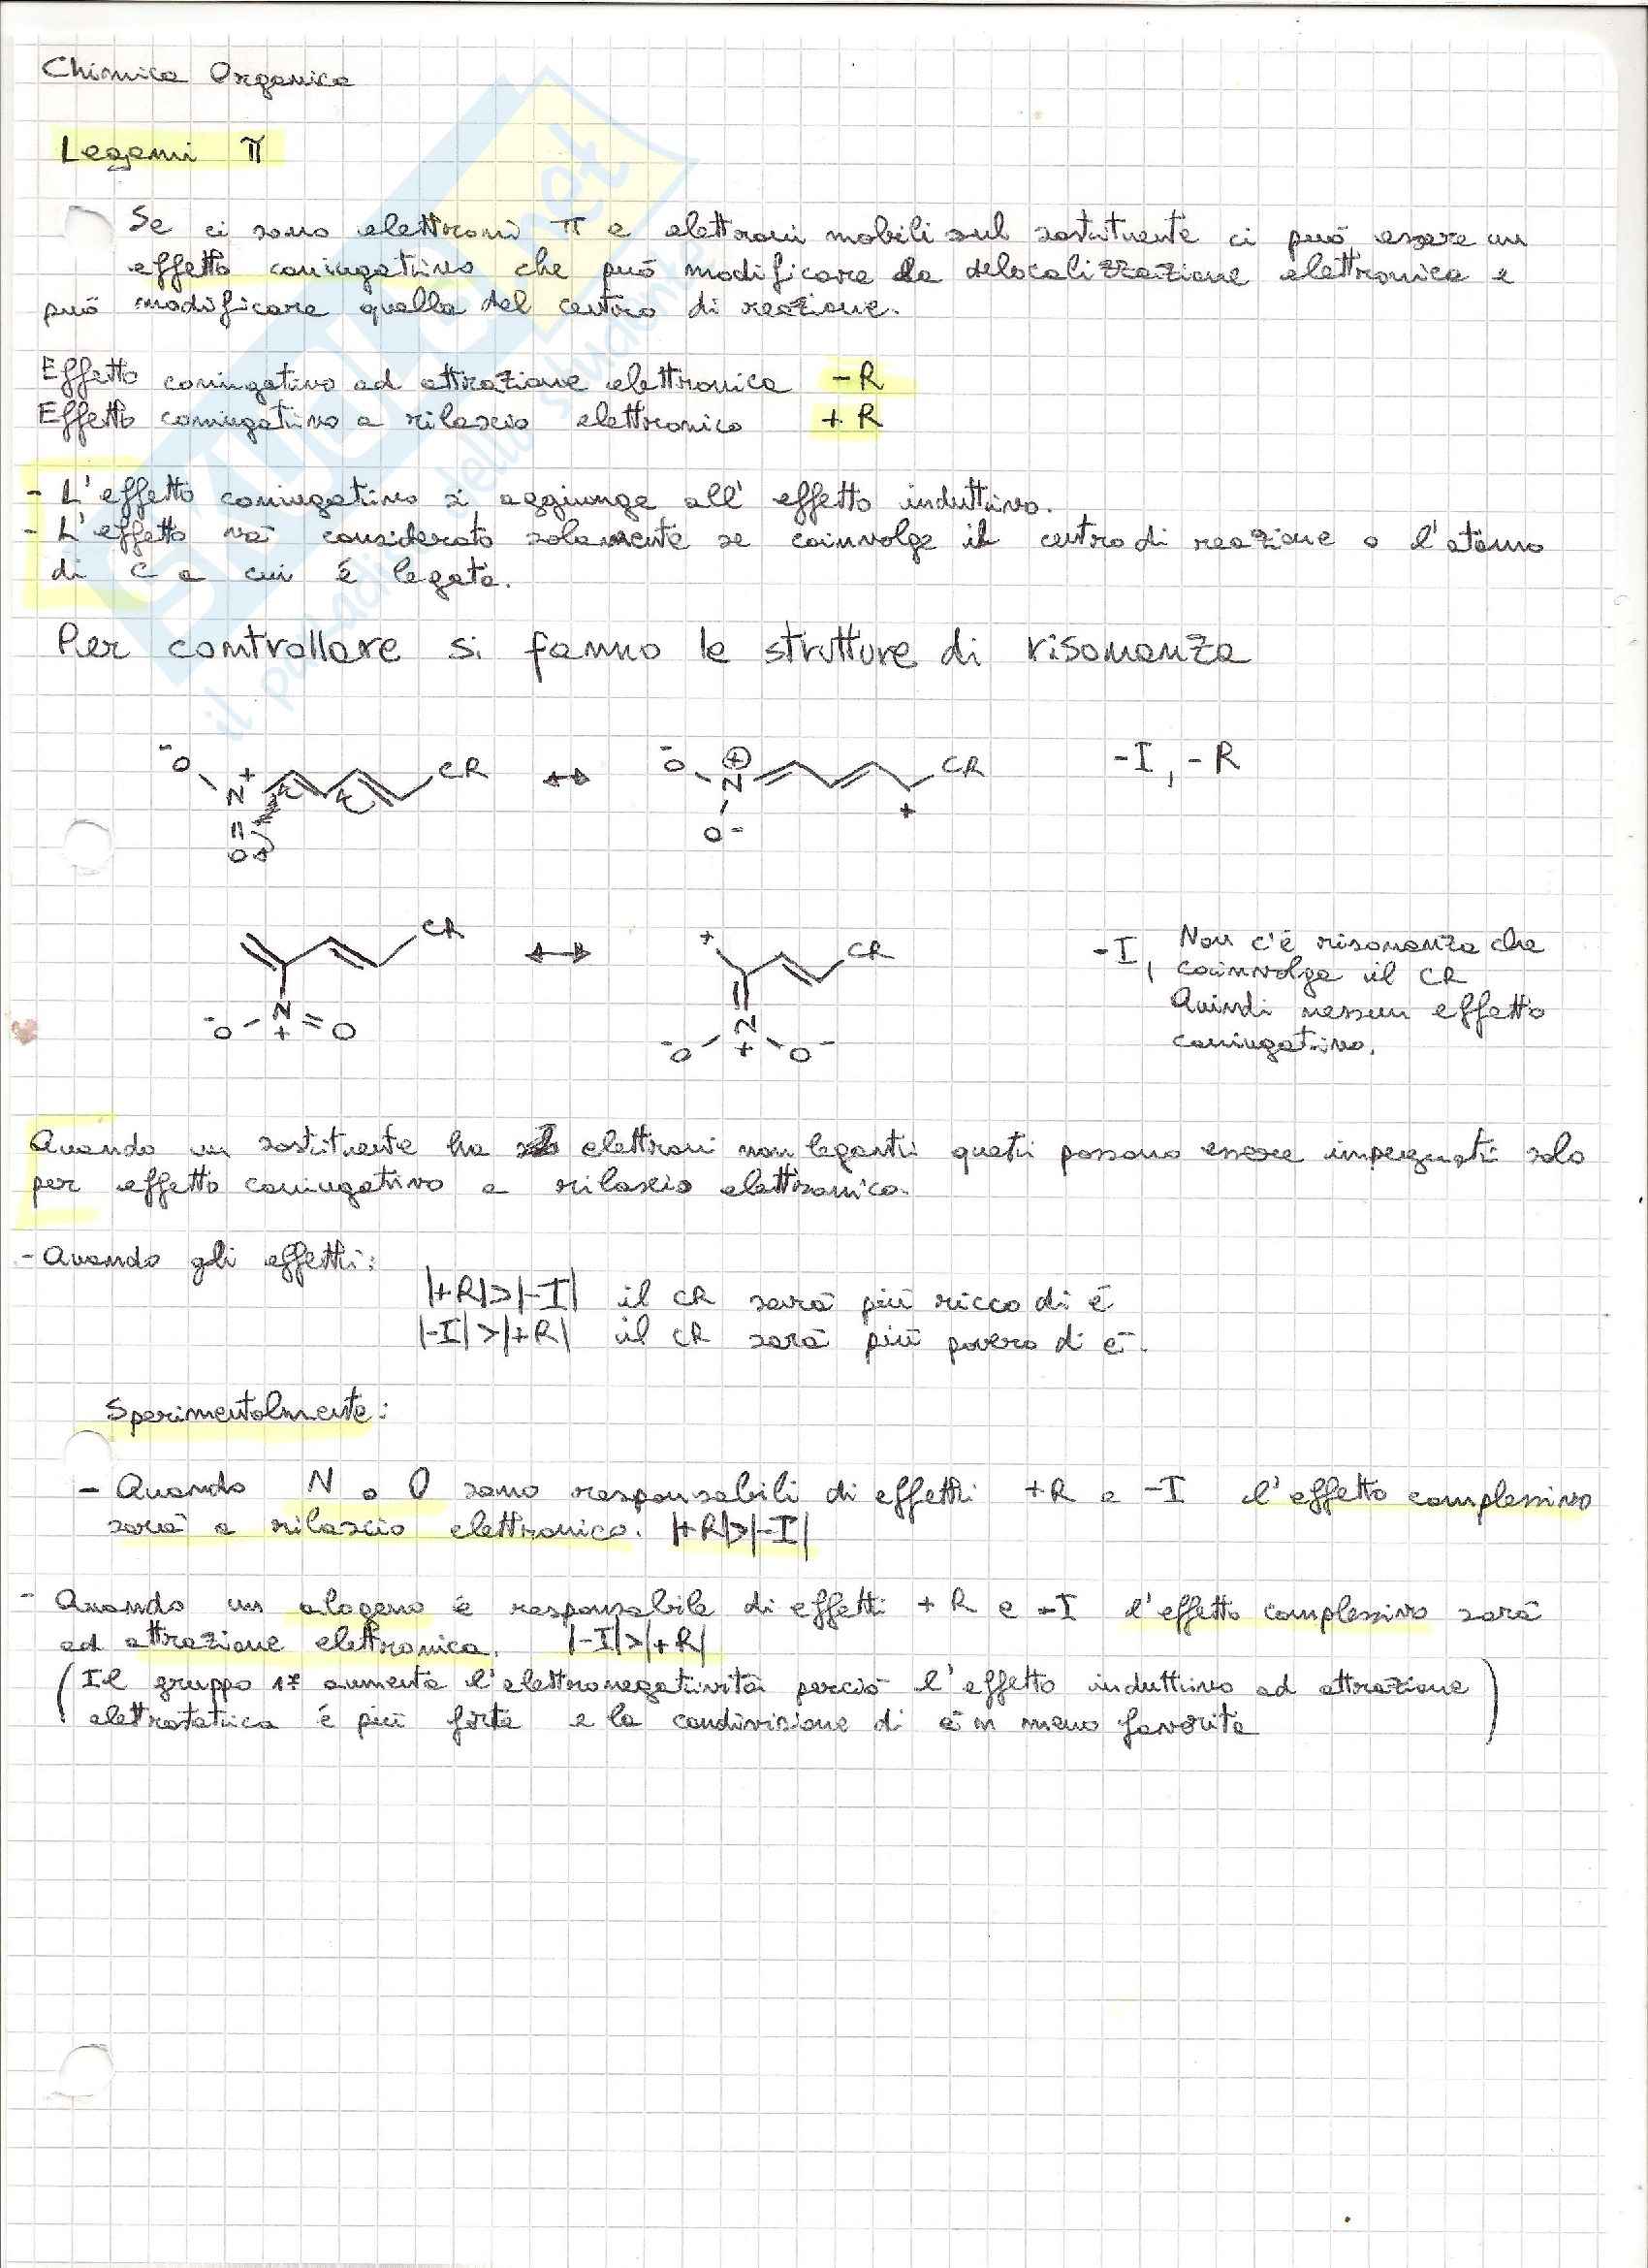 Chimica Organica
Legami π
Se ci sono elettroni π e elettroni mobili sul sostituente ci può essere un
effetto coniugativo che può modificare la delocalizzazione elettronica e
può modificare quella del centro di reazione.
Effetto coniugativo ad attrazione elettronica -R
Effetto coniugativo a rilascio elettronico +R
- L'effetto coniugativo si aggiunge all'effetto induttivo.
- L'effetto và considerato solamente se coinvolge il centro di reazione o l'atomo
di C a cui è legato.
Per controllare si fanno le strutture di risonanza
-O N+ =O CR ↔ -O N⊕ O- + CR -I, -R
CR ↔ + CR -I, Non c'è risonanza che
coinvolge il CR
Quindi nessun effetto
coniugativo.
-O - N+ = O -O N+ O-
Quando un sostituente ha elettroni non leganti questi possono essere impegnati solo
per effetto coniugativo a rilascio elettronico.
- Quando gli effetti:
|+R|>|-I| il CR sarà più ricco di e-
|-I|>|+R| il CR sarà più povero di e-.
Sperimentalmente:
- Quando N o O sono responsabili di effetti +R e -I l'effetto complessivo
sarà a rilascio elettronico. |+R|>|-I|
- Quando un alogeno è responsabile di effetti +R e -I l'effetto complessivo sarà
ad attrazione elettronica. |-I|>|+R|
(Il gruppo 17 aumenta l'elettronegatività perciò l'effetto induttivo ad attrazione
elettrostatica è più forte e la condivisione di e- n meno favorita)